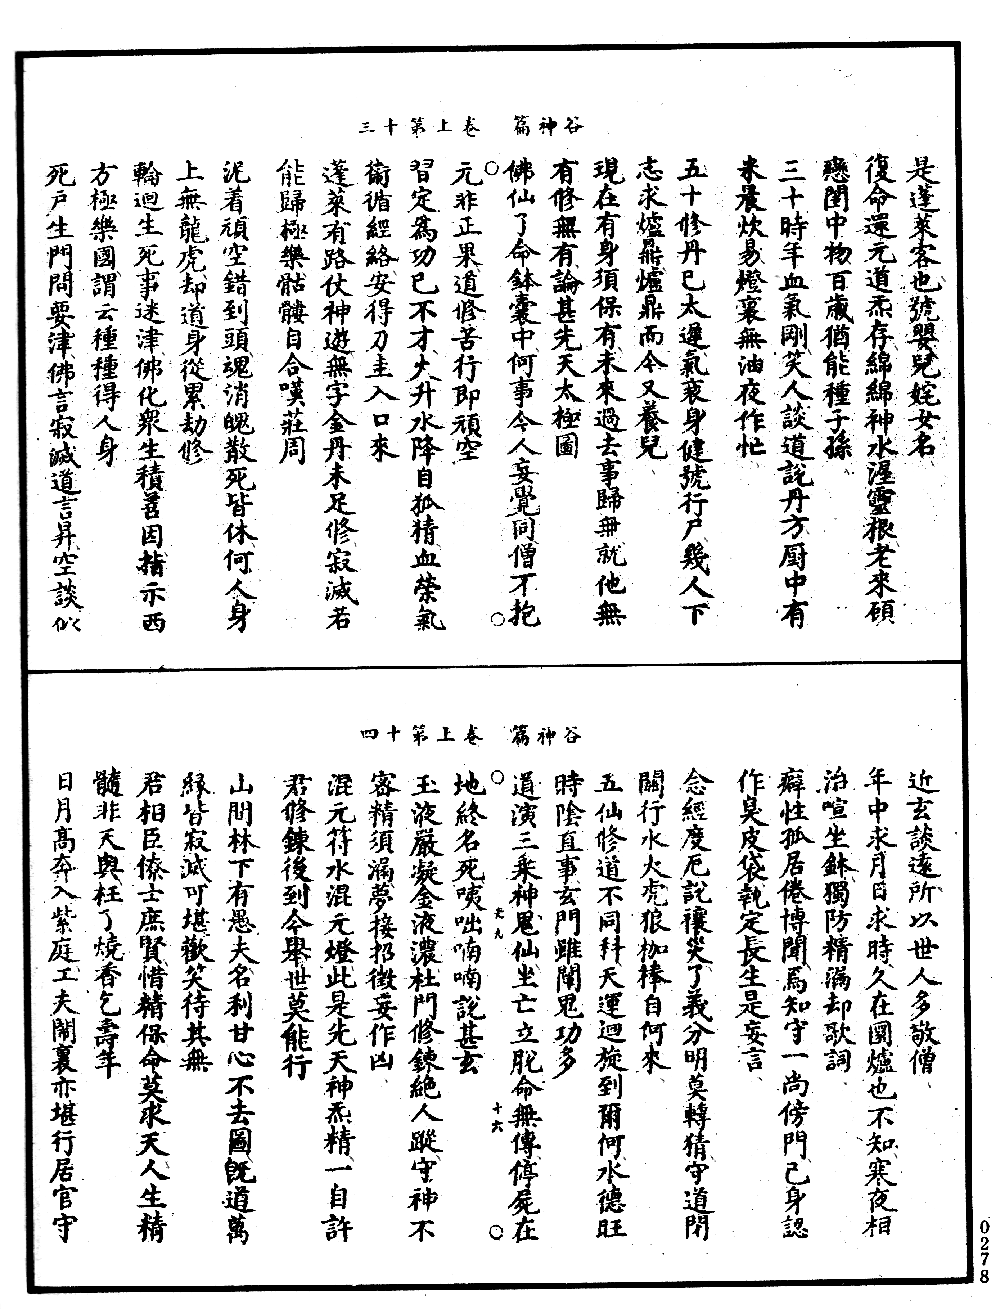 谷神篇 卷上第十三
是蓬萊客也號嬰兒姹女名
復命還元道炁存綿綿神水浸靈根老來碩
戀閨中物百歲猶能種子孫
三十時年血氣剛笑人談道說丹方厨中有
米晨炊易燈裏無油夜作忙
五十修丹已太遲氣衰身健號行尸幾人下
志求爐鼎爐鼎而今又養兒
現在有身須保有未來過去事歸無就他無
有修無有論甚先天太極圖
佛仙了命鉢囊中何事今人妄覺同僧不抱
元非正果道修苦行即頑空
習定為功已不才火升水降自孤精血榮氣
衛循經絡安得刀圭入口來
蓬萊有路仗神遊無字金丹未足修寂滅若
能歸極樂骷髏自合嘆莊周
泥着頑空錯到頭魂消魄散死皆休何人身
上無龍虎却道身從累劫修
輪迴生死事迷津佛化衆生積善因指示西
方極樂國謂云種種得人身
死戶生門問要津佛言寂滅道言昇空談似
谷神篇 卷上第十四
近玄談遠所以世人多敬僧
年中求月日求時久在圜爐也不知寒夜相
治喧坐鉢獨防精漏却歌詞
癖性孤居倦博聞焉知守一尚傍門已身認
作臭皮袋執定長生是妄言
念經度厄說禳災了義分明莫轉猜守道閉
關行水火虎狼枷棒自何來
五仙修道不同科天運迴旋到爾何水德旺
時陰直事玄門雖闡鬼功多
道演三乘神鬼仙坐亡立脫命無傳停屍在
地終名死咦咄喃喃說甚玄
玉液嚴凝金液濃杜門修鍊絕人蹤守神不
密精須漏夢接招徵妄作凶
混元符水混元燈此是先天神炁精一自許
君修鍊後到今舉世莫能行
山間林下有愚夫名利甘心不去圖旣道萬
緣皆寂滅可堪歡笑待其無
君相臣僚士庶賢惜精保命莫求天人生精
髓非天與枉了燒香乞壽年
日月高奔入紫庭工夫鬧裏亦堪行居官守
十六
0278